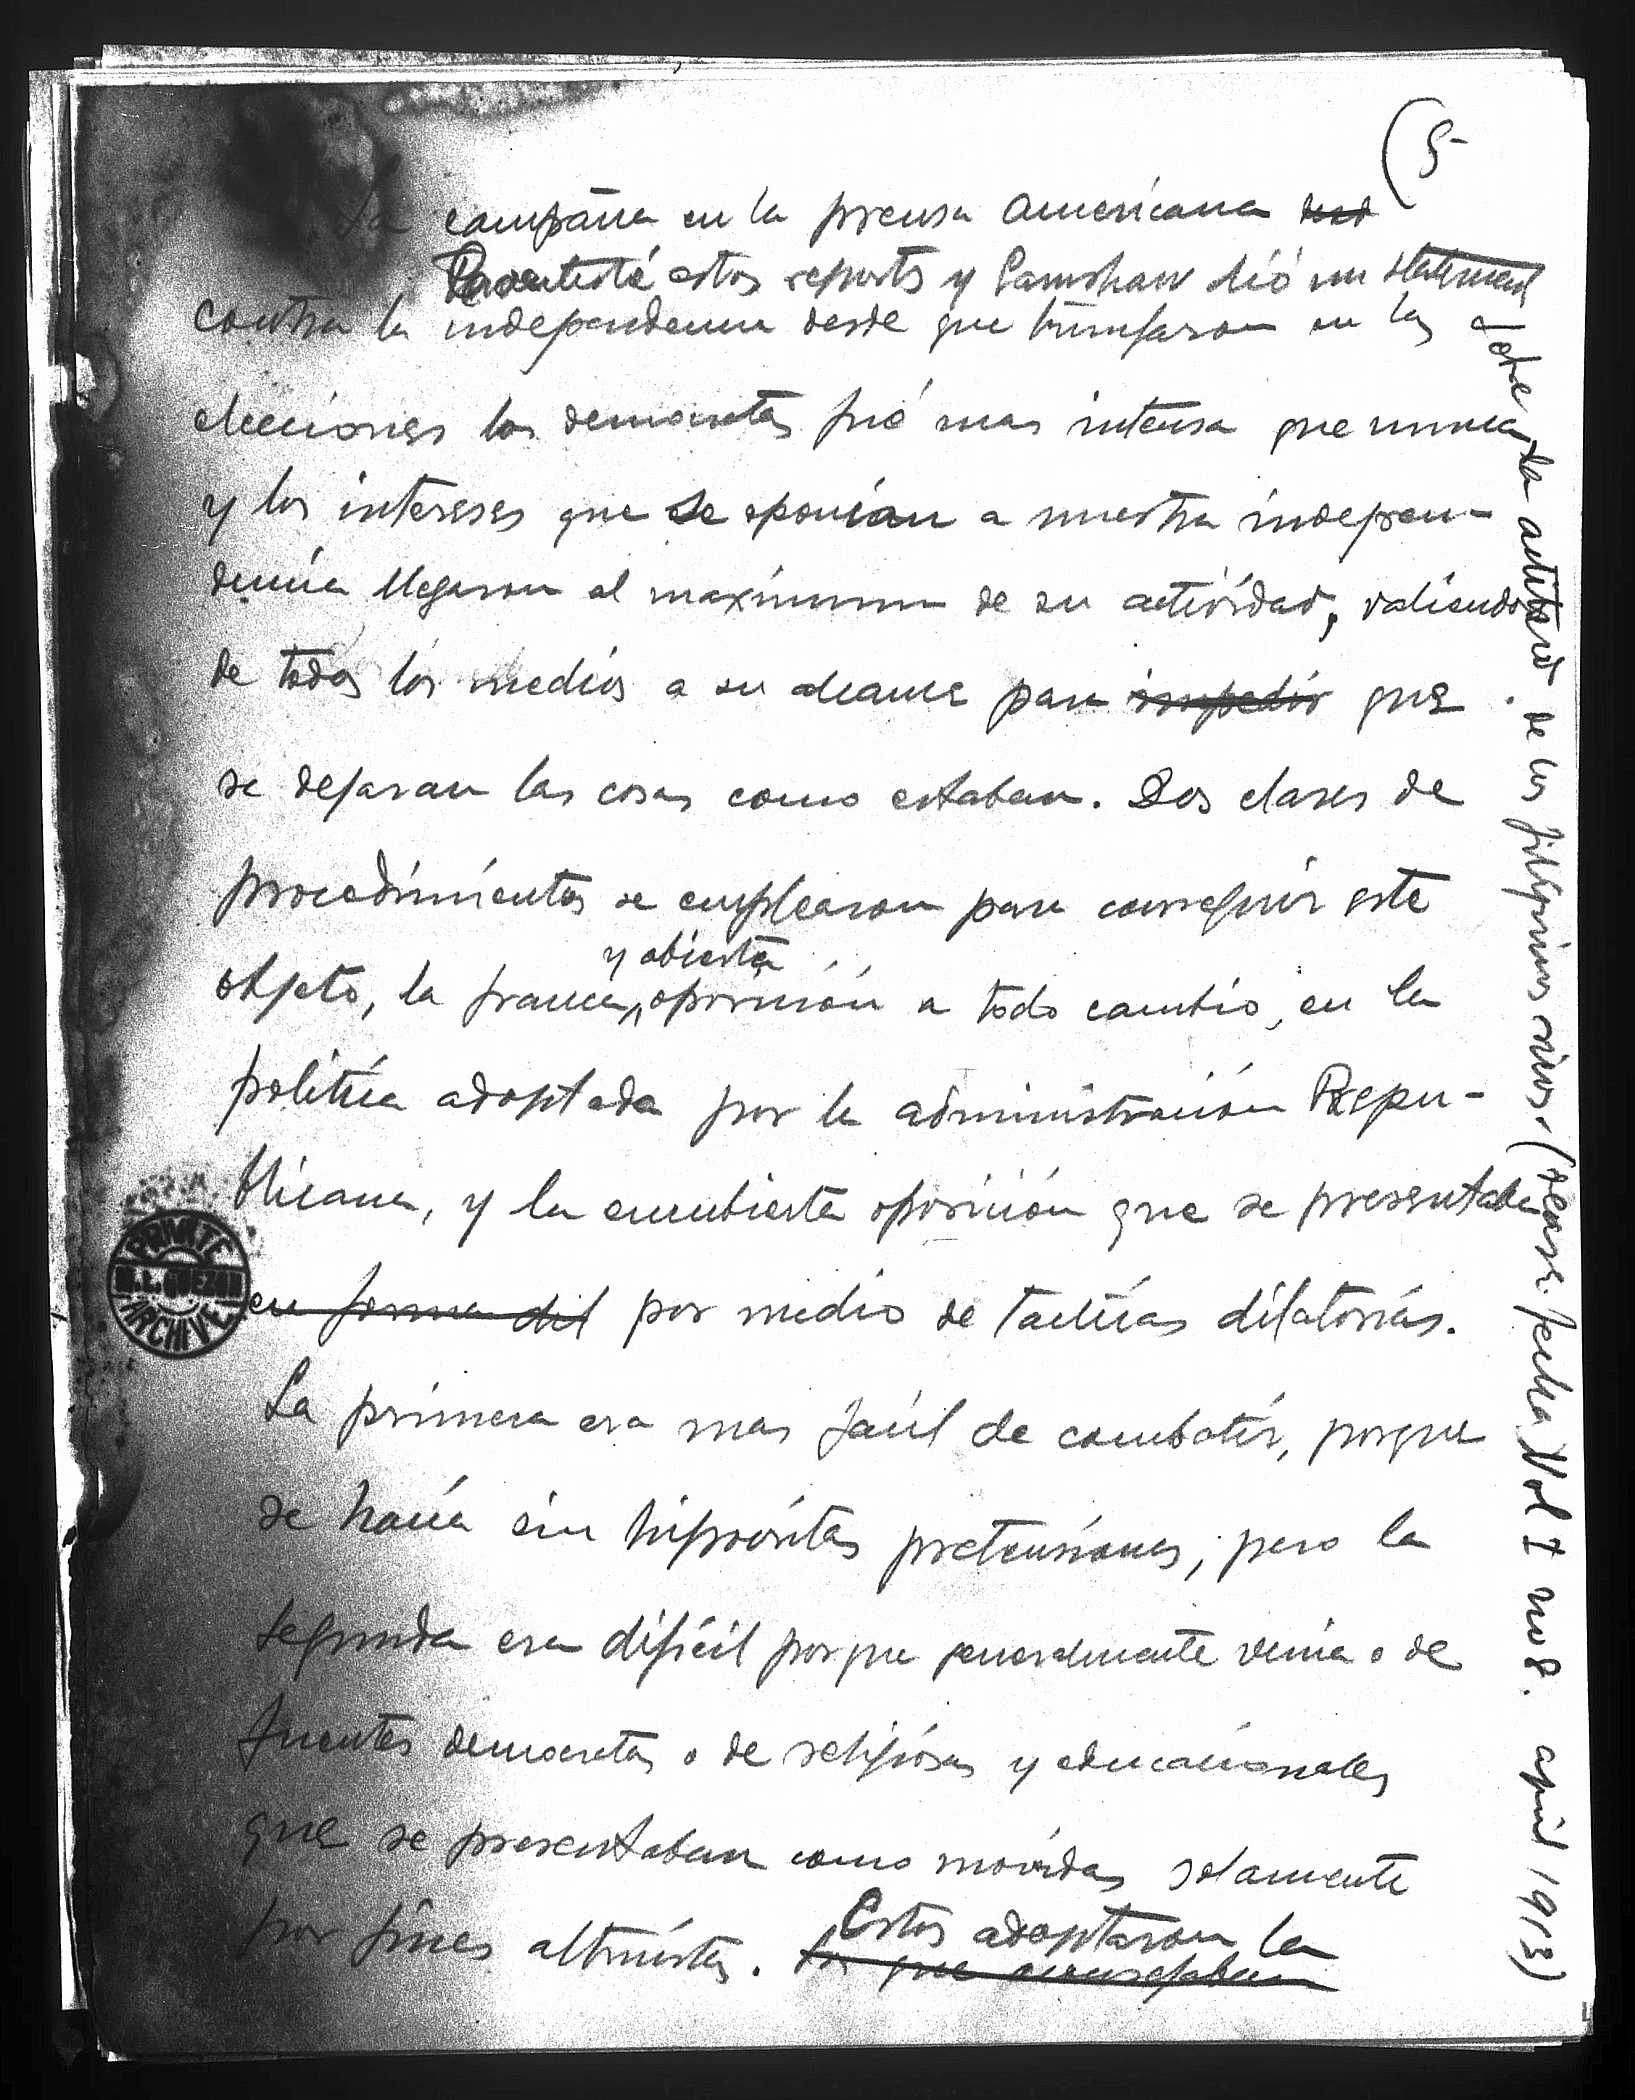 (5
La campaña en la prensa americana
estos reports y Earnshaw dió un statement
contra la independencia desde que triunfaron en las
elecciones los democratas fué mas intensa que nunca
y los intereses que se oponian a nuestra indepen-
dencia llegaron al maximum de su actividad, valiendose
de todos los medios a su alcance para impedir que
se dejaran las cosas como estaban. Dos clases de
procedimientos se emplearon para conseguir este
y abierta
objeto, la franca, oposición a todo cambio, en la
politica adoptada por la administración Repu-
blicana, y la encubierta oposición que se presentaba
en forma dil por medio de tacticas dilatorias.
La primera era mas facil de combatir, porque
se hacia sin hipocritas pretensiones, pero la
segunda era dificil porque generalmente venia o de
fuentes democratas o de religiosas y educacionales
que se presentaban como movidas solamente
por fines altruistas. Estos adoptaron la
que aconsejaban
sobre la actitud de los filipinos ricos. (vease fecha Vol I no 8. april 1913)
PRIVATE
M. L. QUEZON
ARCHIVE